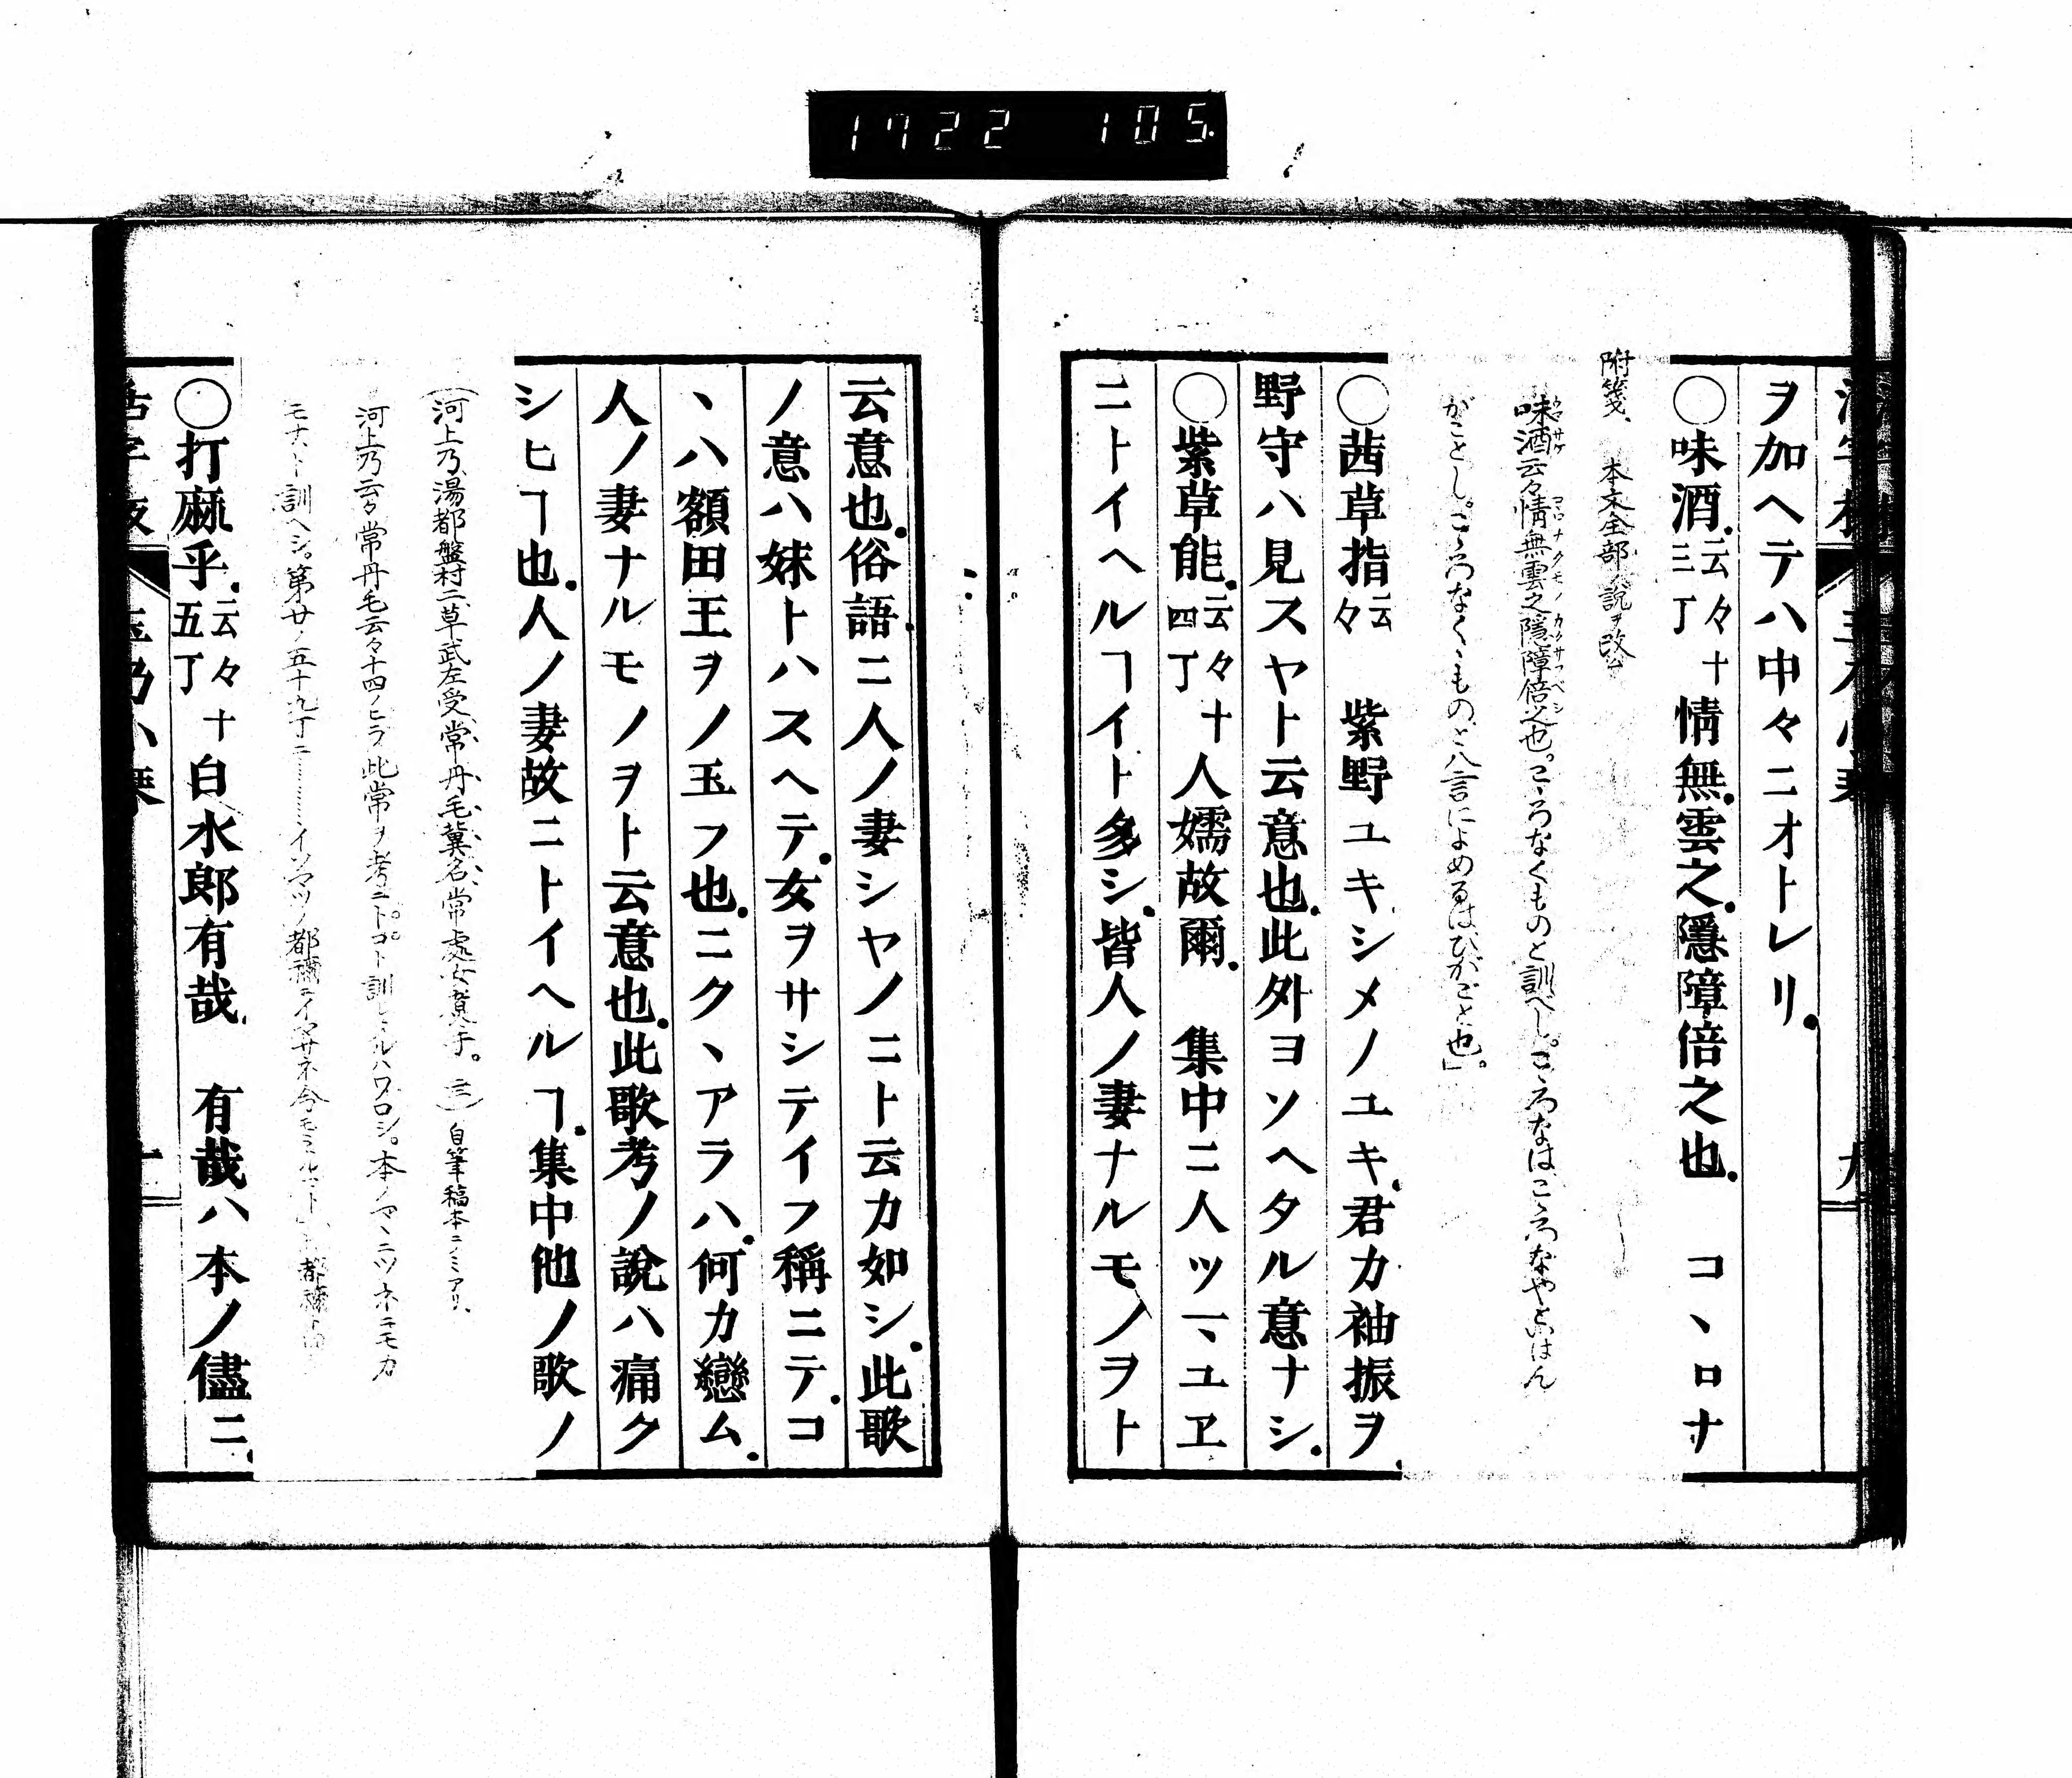 1722 105
ヲ加ヘテハ中々ニオトレリ.
○味酒.云々十三丁情無.雲之.隱障倍之也. コヽロナ
附箋、 本文全部ノ說ヲ改
味酒云々情無雲之隱障倍之也。こゝろなくものと訓べし。こゝろなは、こゝろなやといはん
がことし。こゝろなくもの、と八言によめるは、ひがごと也。」
○茜草指云々 紫野ユキシメノユキ.君カ袖振ヲ.
野守ハ見スヤト云意也.此外ヨソヘタル意ナシ.
○紫草能.云々十四丁人嬬故爾. 集中ニ人ツマユヱ
ニトイヘルヿイト多シ.皆人ノ妻ナルモノヲト
云意也.俗語.ニ人ノ妻シヤノニト云カ如シ.此歌
ノ意ハ妹トハスヘテ.女ヲサシテイフ稱ニテ.コ
ヽハ額田王ヲノ玉フ也.ニクヽアラハ.何カ戀ム.
人ノ妻ナルモノヲト云意也.此歌考ノ說ハ痛ク
シヒヿ也.人ノ妻故ニトイヘルヿ.集中他ノ歌ノ
(河上乃、湯都盤村二、草武左受、常丹毛冀名、常處女煑手。(三) 自筆稿本ニノミアリ、
河上乃云々 常丹毛云々十四ノヒラ此常ヲ考ニトコト訓レルハワロシ。本ノマヽニツネニモカ
モナト訓ヘシ。第廿ノ五十九丁ニ
○打麻乎.云々十五丁白水郎有哉. 有哉ハ本ノ儘ニ.